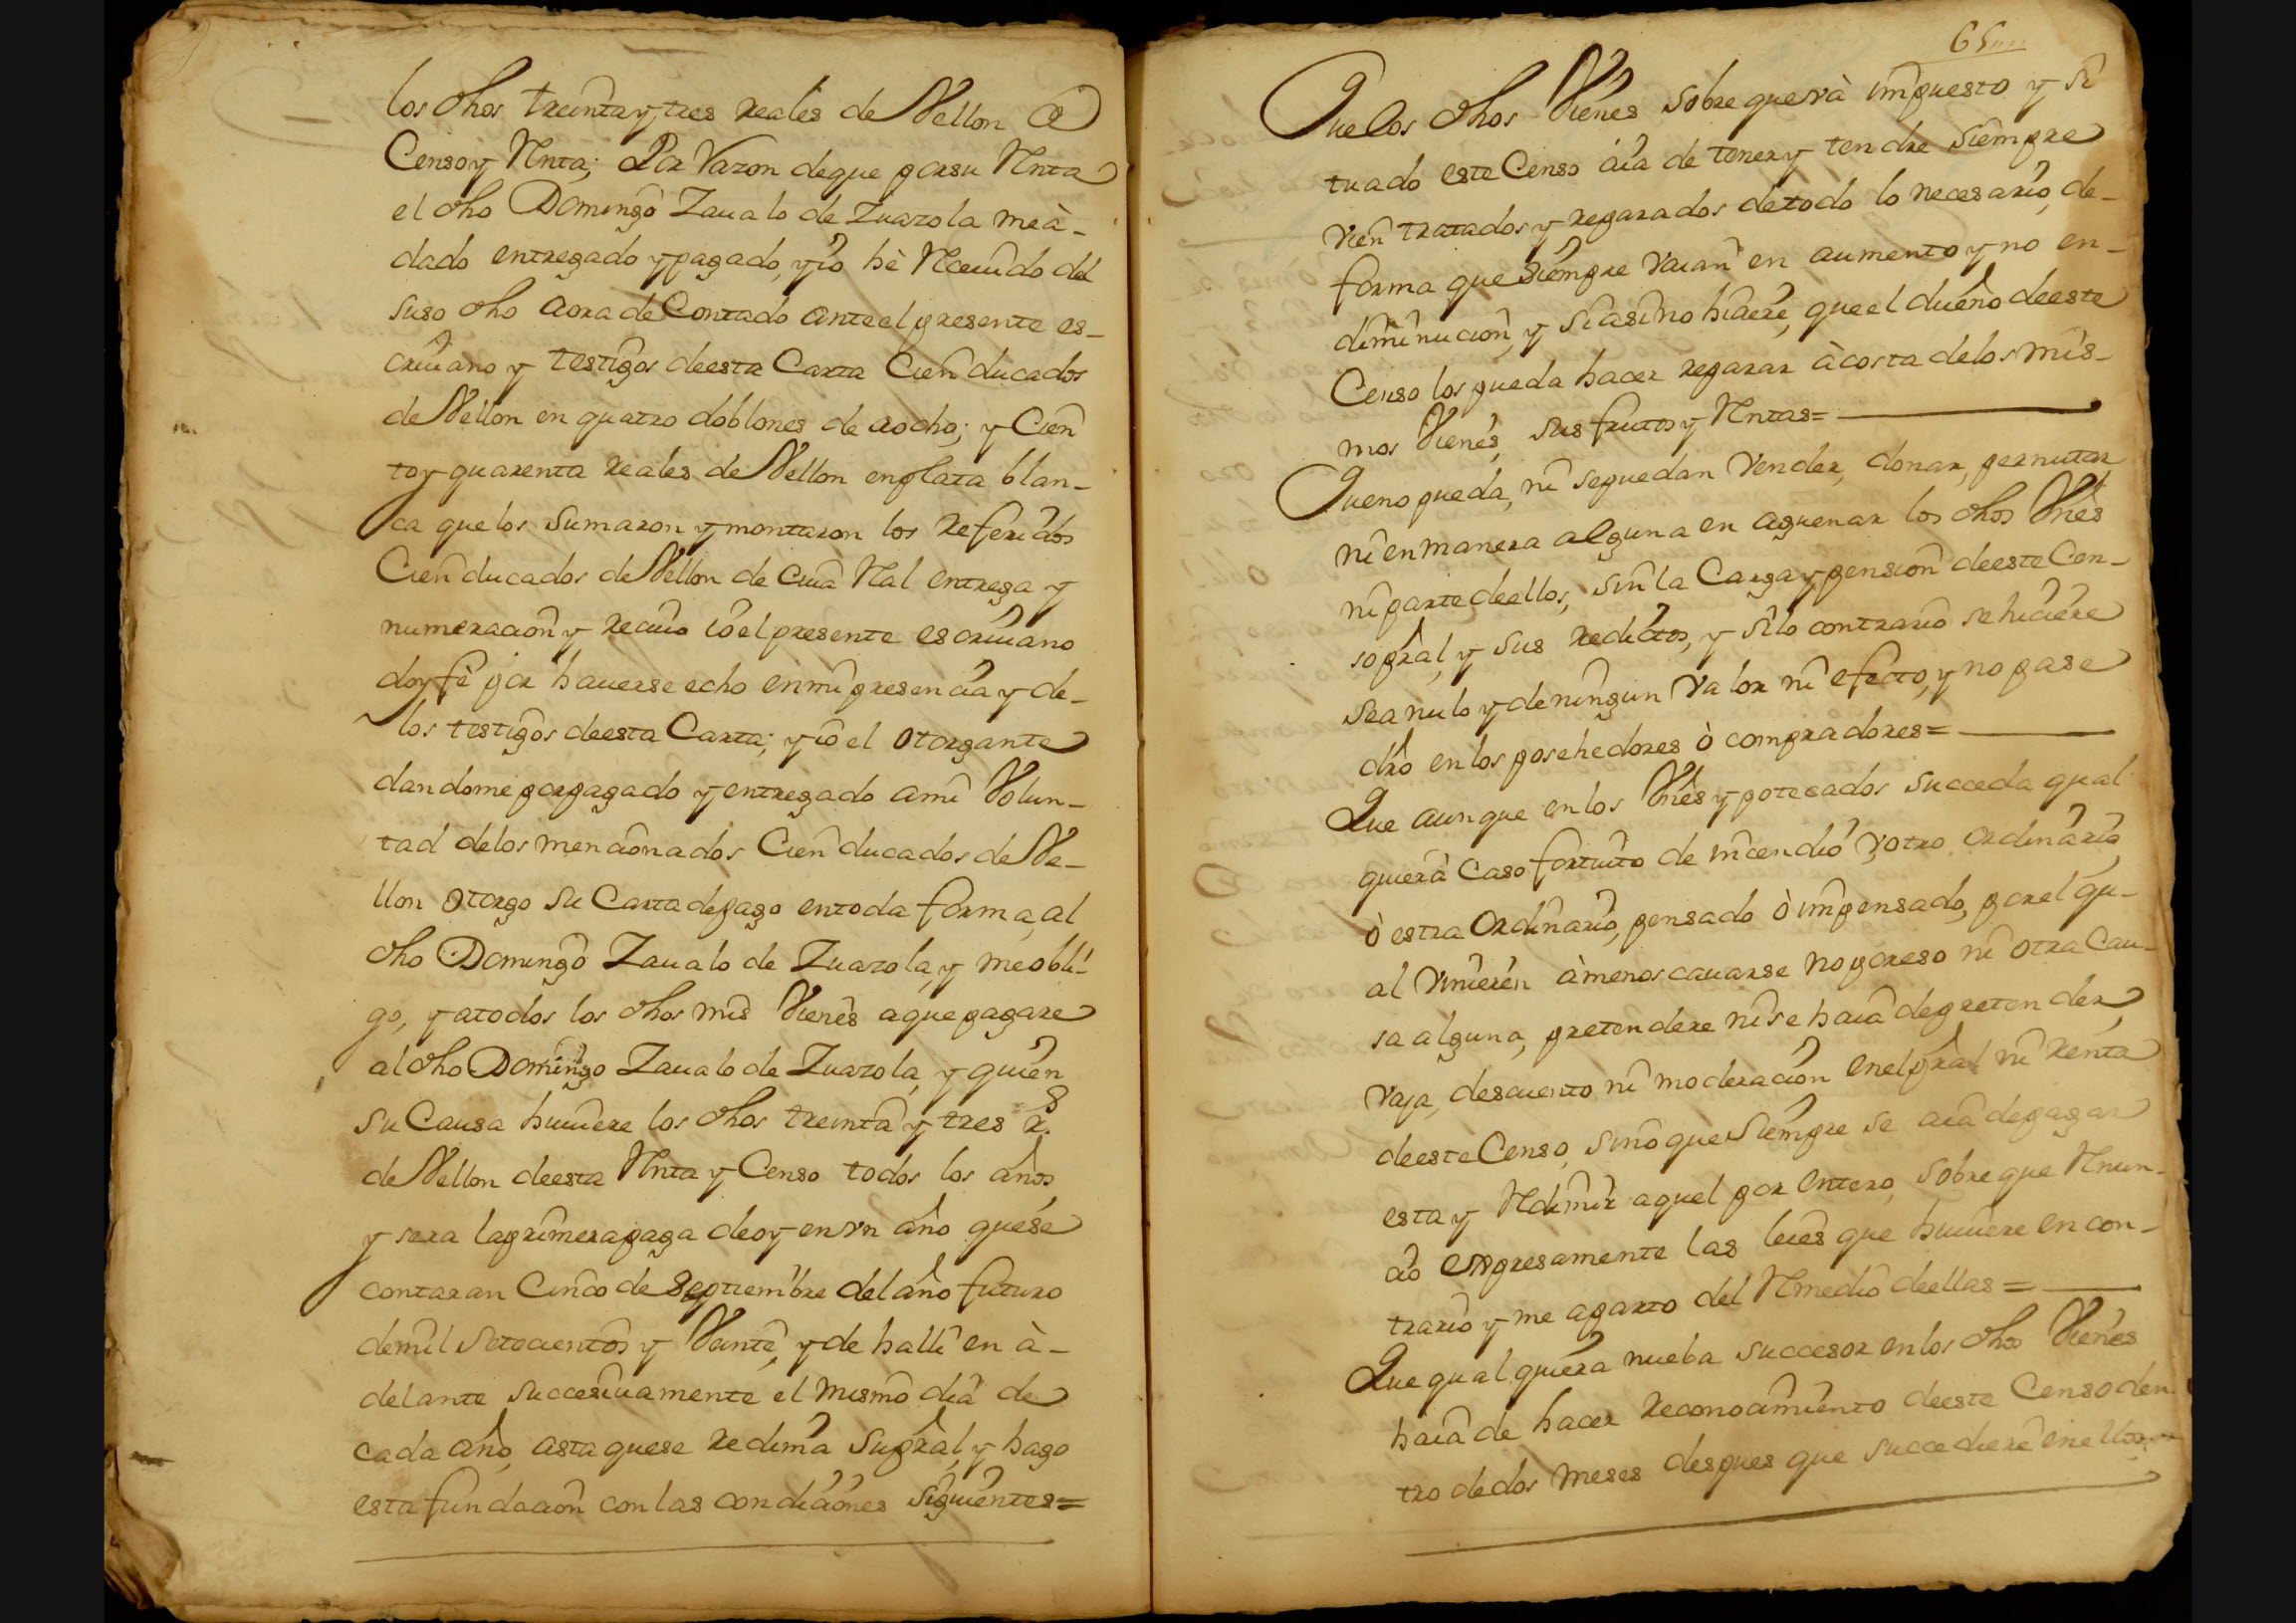 los dhos treinta y tres reales de Vellon de
Censo y Renta; Por Razon de que por su Renta
el dho Domingo Zaualo de Zuazola me à-
dado entregado y pagado, y io hè Receuido del
suso dho aora de Contado ante el presente es-
criuano y testigos de esta Carta Cien ducados
de Vellon en quatro doblones de a ocho; y Cien
to y quarenta reales de Vellon en plata blan-
ca que los sumaron y montaron los referidos
Cien ducados de Vellon de Cuia Real entrega y
numeracion y reciuo io el presente escriuano
doy fè por hauerse echo en mi presencia y de-
los testigos de esta Carta; y io el otorgante
dandome por pagado y entregado a mi Volun-
tad de los mencionados Cien ducados de Ve-
llon otorgo su Carta de pago en toda forma, al
dho Domingo Zaualo de Zuazola, y me obli-
go, y a todos los dhos mis Vienes a que pagare
al dho Domingo Zaualo de Zuazola, y quien
su Causa huuiere los dhos treinta y tres rs.
de Vellon de esta Renta y Censo todos los años,
y sera la primera paga de oy en vn año que se
contaran Cinco de Septiembre del año futuro
de mil setecientos y Veinte, y de halli en à-
delante succesiuamente el mismo dia de
cada año, asta que se redima su pral, y hago
esta fundacion con las condiciones siguientes=
65
Que los dhos Vienes sobre que và impuesto y si
tuado este Censo aia de tener y tendre siempre
vien tratados y reparados de todo lo necesario, de-
forma que siempre vaian en aumento y no en-
diminucion, y si asi no hiciere, que el dueño de este
Censo los pueda hacer reparar à costa de los mis-
mos Vienes, sus frutos y Rentas=
Que no pueda, ni se puedan Vender, donar, permutar
ni en manera alguna en aguenar los dhos Vnes
ni parte de ellos, sin la Carga y pension de este Cen-
so pral, y sus redictos, y si lo contrario se hiciere
sea nulo y de ningun Valor ni efecto, y no pase
dro en los posehedores ò compradores=
Que aunque en los Vnes ypotecados succeda qual
quiera Caso fortuito de incendio y otro ordinario,
ò estra Ordinario, pensado ò impensado, por el qu-
al vinieren à menoscauarse no por eso ni otra Cau-
sa alguna, pretendere ni se haia de pretender
vaja, descuento ni moderacion en el pral ni renta
de este Censo, sino que siempre se aia de pagar
esta y Redimir aquel por entero, sobre que Renun-
cio expresamente las leies que huuiere en con-
trario y me aparto del Remedio de ellas=
Que qualquiera nueba succesor en los dhos Vienes
haia de hacer reconocimiento de este Censo den
tro de dos meses despues que succediere en ellos